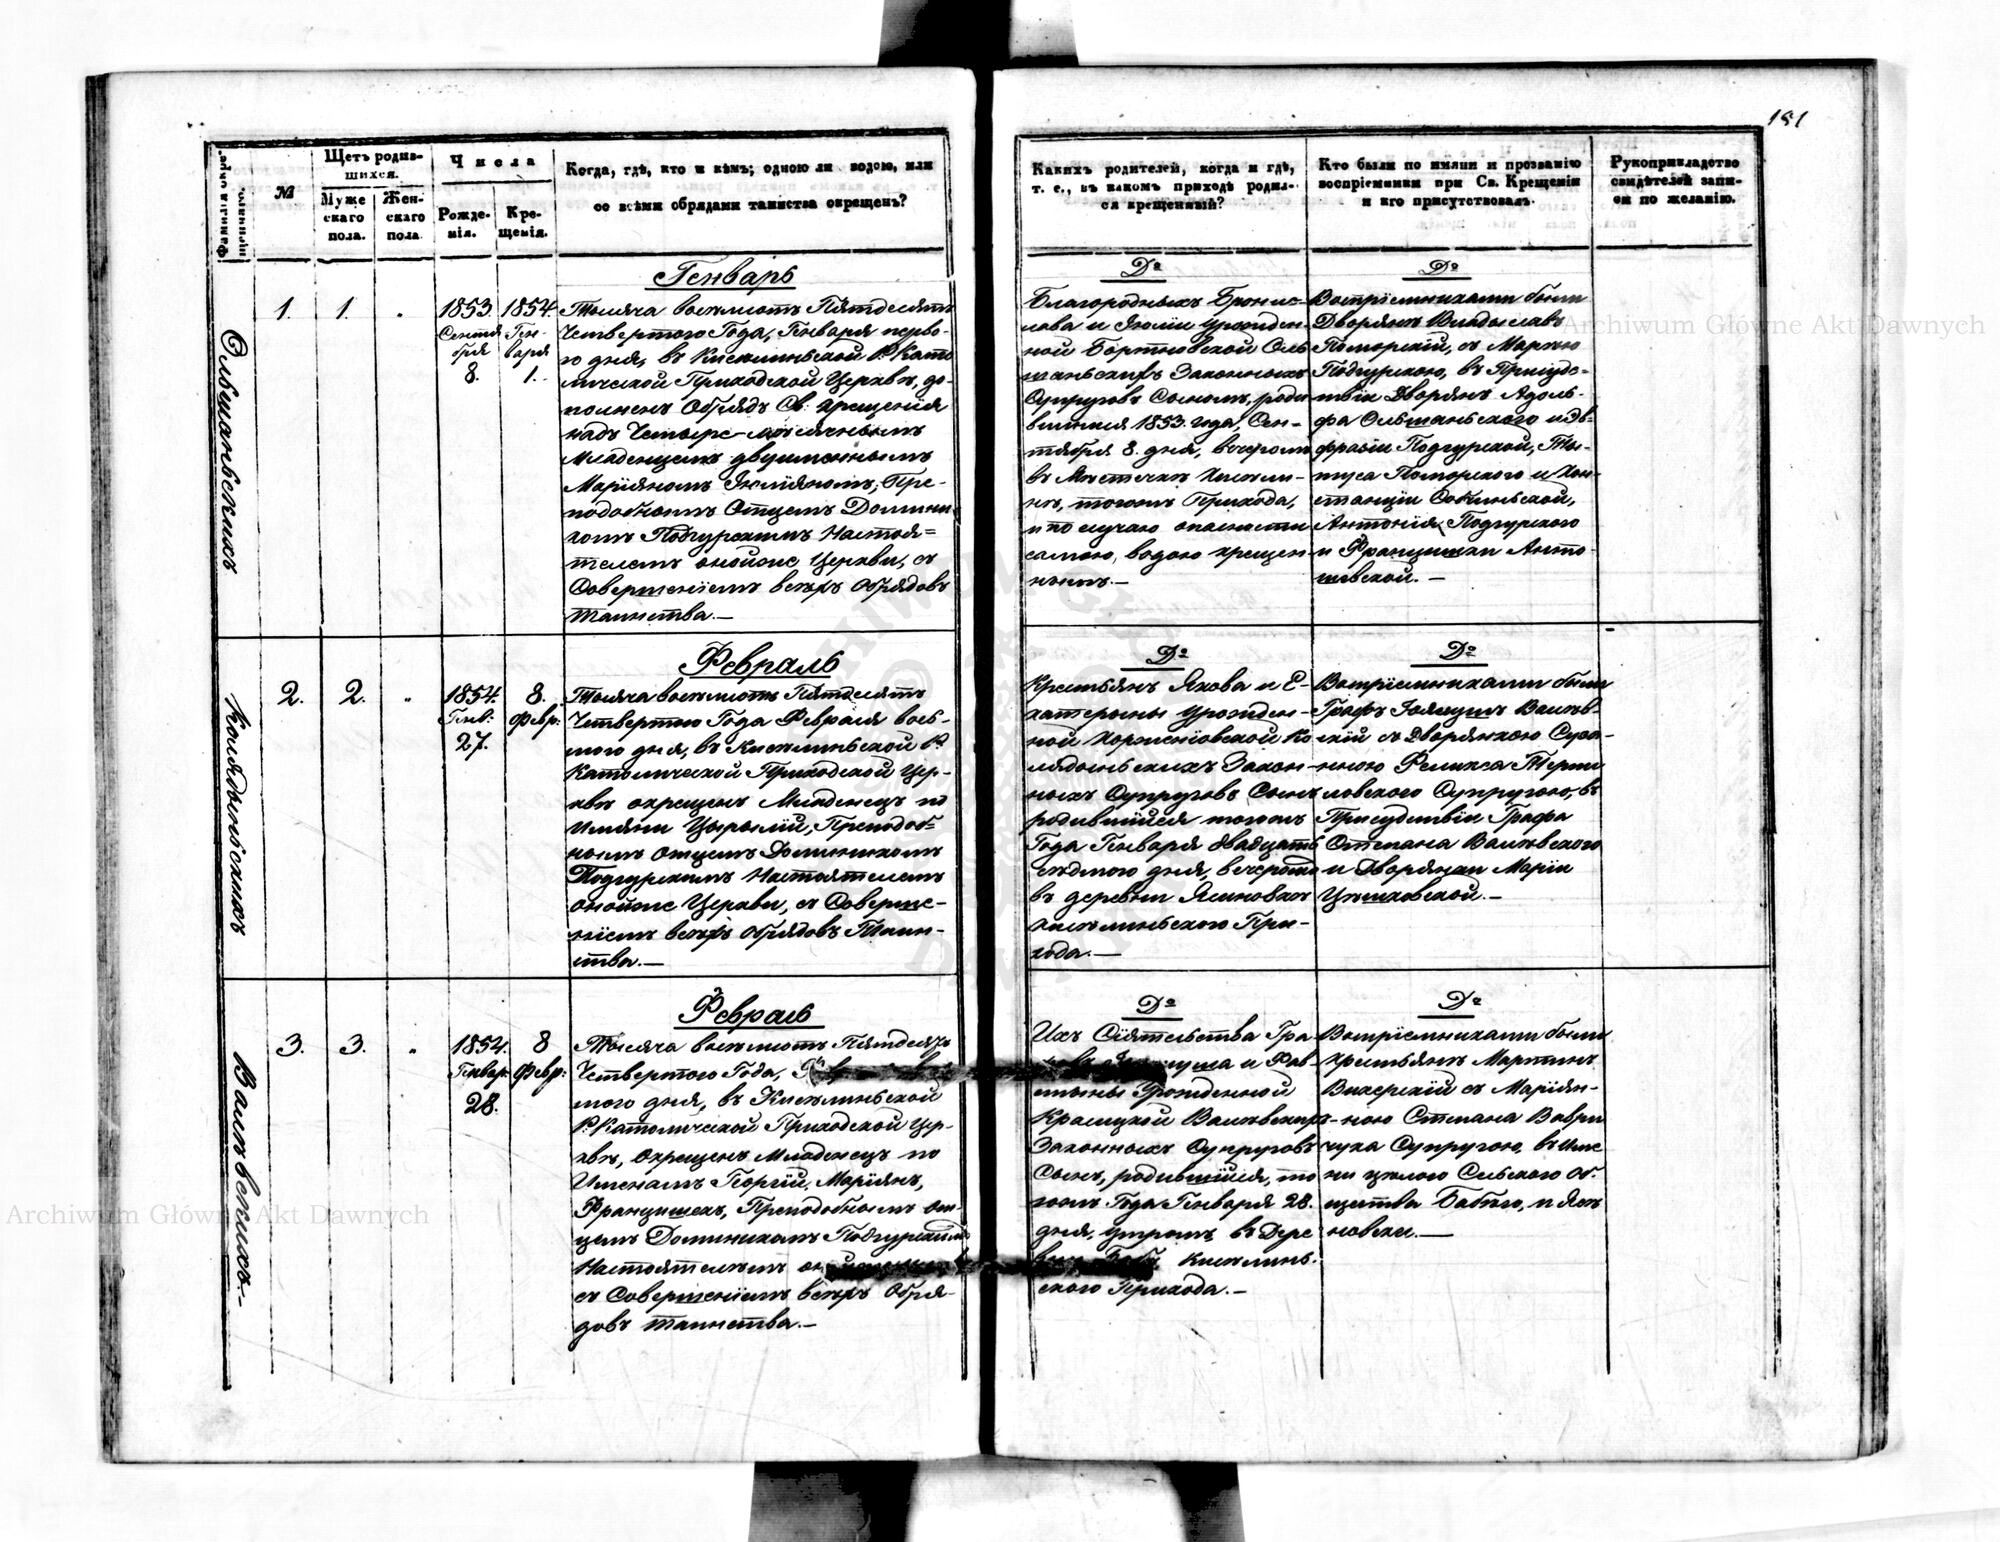 181
Фамилія окре-
щеннаго.
№
Щетъ родив-
шихся.
Муже
скаго
пола.
Жен-
скаго
пола
Числа
Рожде-
нія.
Кре-
щенія.
Когда, гдѣ, кто и кѣмъ; одною ли водою, или
со всѣми обрядами таинства окрещенъ?
Каких родителей, когда и гдѣ,
т. е., въ какомъ приходѣ родил-
ся крещенный?
Кто были по имяни и прозванію
воспріемники при Св. Крещеніи
и кто присутствовалъ.
Рукоприкладство
свидѣтелей запи-
си по желанію.
Ольшаньскихъ
1.
1.
1853.
Сентя
бря
8.
1854.
Ген-
варя
1.
Генварь
Тысяча восемьсотъ Пятдесятъ
Четвертого Года, Генваря перво-
го дня, въ Киселиньской Р. Като
лической Приходской Церкви, до-
полненъ Обрядъ Св. Крещенія
надъ Четыре-мѣсячнымъ
Младенцемъ двуименнымъ
Маріяномъ Юліяномъ, Пре-
подобнымъ Отцемъ Домини
комъ Подгурскимъ Настоя=
телемъ онойже Церкви, съ
Совершеніемъ всѣхъ Обрядовъ
Таинства.—
Dº
Благородныхъ Бронис-
лава и Юліи Урожден-
ной Бортновской Оль
шаньскихъ Законныхъ
Супруговъ Сыномъ, роди
вшимся 1853. года, Сен-
тября 8. дня, вечеромъ
въ Мѣстечкѣ Кисели-
нѣ, тогожъ Прихода,
и по случаю опасности
самою, водою крещен
нымъ.—
Dº
Воспріемниками были
Дворянъ Владыславъ
Поморскій, съ Маріею
Подгурскою, въ Присудс-
твіи Дворянъ Адоль-
фа Ольшаньского и Эв-
фразіи Подгурской, Ты-
туса Поморского и Кон-
станціи Собѣиньской,
Антонія Подгурского
и Францишки Анто-
шевской.—
Колядыньскихъ
2.
2.
1854.
Генв:
27.
8.
Февр:
Февраль
Тысяча восемьсотъ Пятдесятъ
Четвертого Года Февраля вось-
мого дня, въ Киселиньской Р.
Католической Приходской Цер-
кви окрещенъ Младенецъ по
Имяни Цырылій, Преподоб=
нымъ Отцемъ Доминикомъ
Подгурскимъ Настоятелемъ
онойже Церкви, съ Соверше-
ніемъ всѣхъ Обрядовъ Таин-
ства.—
Dº
Крестьянъ Якова и Е-
катерины Урожден-
ной Корженіовской Ко
лядыньскихъ Закон-
ныхъ Супруговъ Сынъ
родившійся тогожъ
Года Генваря двадцать
седмого дня, вечеромъ
въ деревни Ясиновкѣ
Киселиньского При-
хода.—
Dº
Воспріемниками были
Графъ Іоахимъ Валѣв-
скій съ Дворянкою Суса-
нною Феликса Терпи
ловского Супругою, въ
Присудствіи Графа
Степана Валѣвского
и Дворянки Маріи
Цѣшковской.—
Валѣвскихъ.—
3.
3.
1854.
Генвар:
28.
8
Февр:
Февраль
Тысяча восемьсотъ Пятдесятъ
Четвертого Года,
мого дня, въ Киселиньской
Р. Католической Приходской Цер-
кви, окрещенъ Младенецъ по
Именамъ Георгій, Маріянъ,
Францишекъ, Преподобнымъ От-
цемъ Доминикомъ Подгурскимъ
Настоятелемъ
съ Совершеніемъ всѣхъ Обря-
довъ Таинства.—
Dº
Ихъ Сіятельства Гра
и Фав-
стыны Урожденной
Красицкой Валѣвскихъ
Законныхъ Супруговъ
Сынъ, родившійся, то
гожъ Года Генваря 28.
дня, утромъ, въ Дере
Киселинь-
ского Прихода.—
Dº
Воспріемниками были
Крестьянъ Мартинъ
Викерскій съ Маріян-
ною Степана Ваври
чука Супругою, въ Име
ни цѣлого Сельского Об-
щества Бабього, и Яси
новки.—
Archiwum Główne Akt Dawnych
Archiwum Główne Akt Dawnych